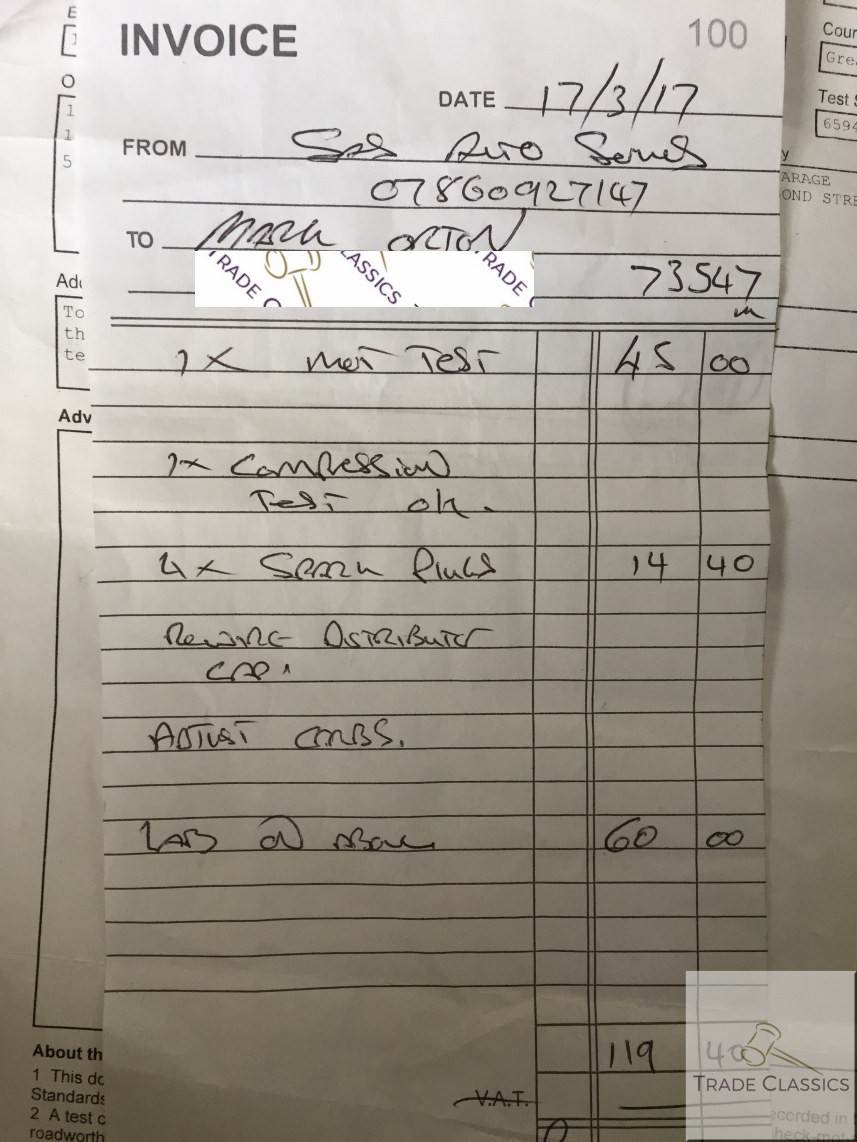 INVOICE 100
DATE 17/3/17
FROM SAS Auto Services
07860927147
TO MARK ORTON
TRADE C LASSICS TRADE
73547
m
1x MOT TEST 45 00
1x Compression
Test ok.
4x SPARK Plugs 14 40
Rewire DISTRIBUTOR
CAP.
ADJUST CARBS.
LAB ON above 60 00
119 40
V.A.T.
TRADE CLASSICS
Cour
Gre
Test S
6594
ARAGE
OND STRE
E
O
1
1
5
Add
To
th
te
Adv
About th
1 This do
Standards
2 A test c
roadworth
ecorded in